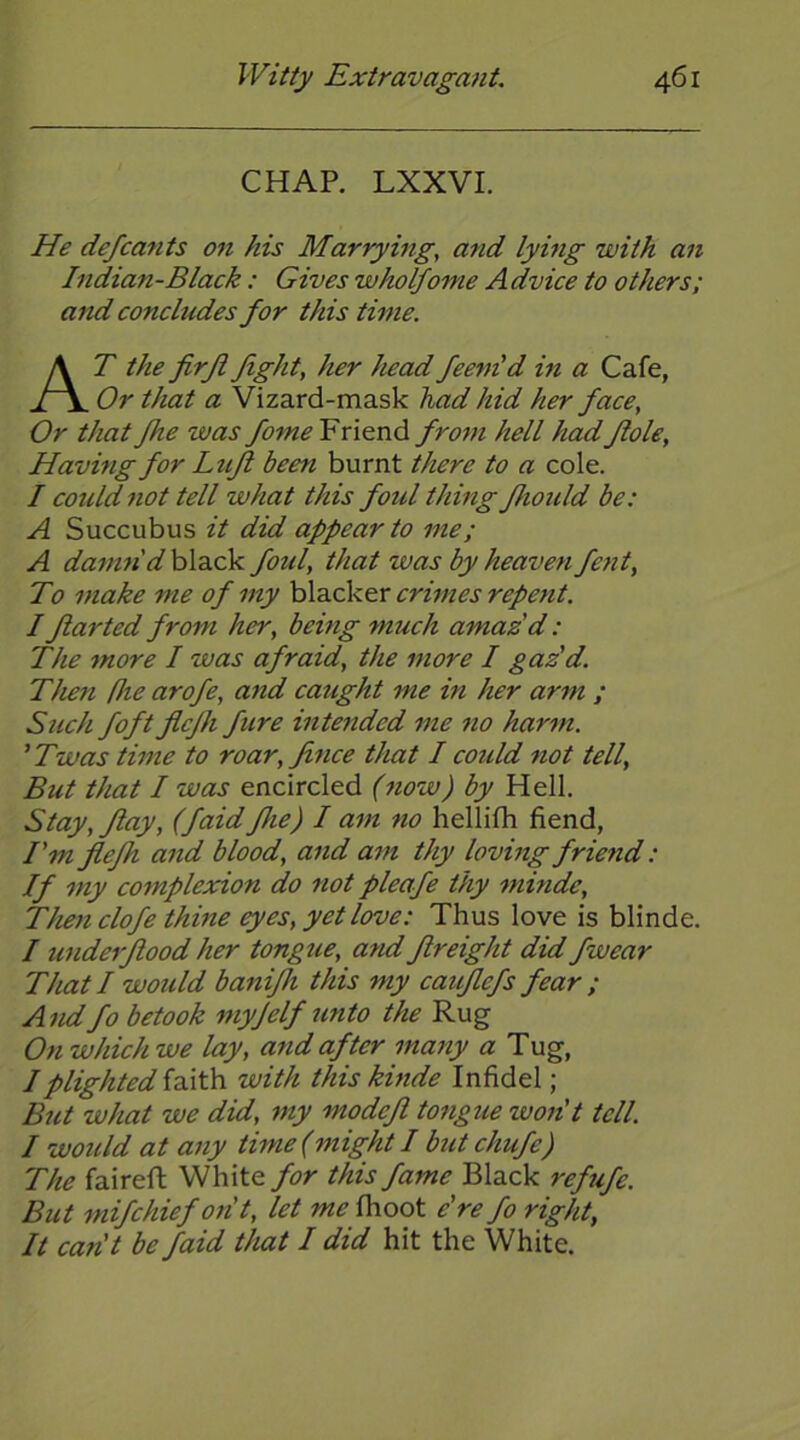 Witty Extravagant. 461
CHAP. LXXVI.
He deſcants on his Marrying, and lying with an
Indian-Black : Gives wholſome Advice to others;
and concludes for this time.
AT the firſt ſight, her head ſeem'd in a Caſe,
Or that a Vizard-mask had hid her face,
Or that ſhe was ſome Friend from hell had ſtole,
Having for Luſt been burnt there to a cole.
I could not tell what this foul thing ſhould be:
A Succubus it did appear to me;
A damn'd black ſoul, that was by heaven ſent,
To make me of my blacker crimes repent.
I ſtarted from her, being much amaz'd :
The more I was afraid, the more I gaz'd.
Then ſhe aroſe, and caught me in her arm ;
Such ſoft fleſh ſure intended me no harm.
'Twas time to roar, ſince that I could not tell,
But that I was encircled (now) by Hell.
Stay, ſtay, (ſaid ſhe) I am no helliſh fiend,
I'm fleſh and blood, and am thy loving friend :
If my complexion do not pleaſe thy minde,
Then cloſe thine eyes, yet love: Thus love is blinde.
I underſtood her tongue, and ſtreight did ſwear
That I would baniſh this my cauſleſs fear ;
And ſo betook myſelf unto the Rug
On which we lay, and after many a Tug,
I plighted faith with this kinde Infidel ;
But what we did, my modeſt tongue won't tell.
I would at any time (might I but chuſe)
The faireſt White for this ſame Black refuſe.
But miſchief on't, let me ſhoot e're ſo right,
It can't be ſaid that I did hit the White.